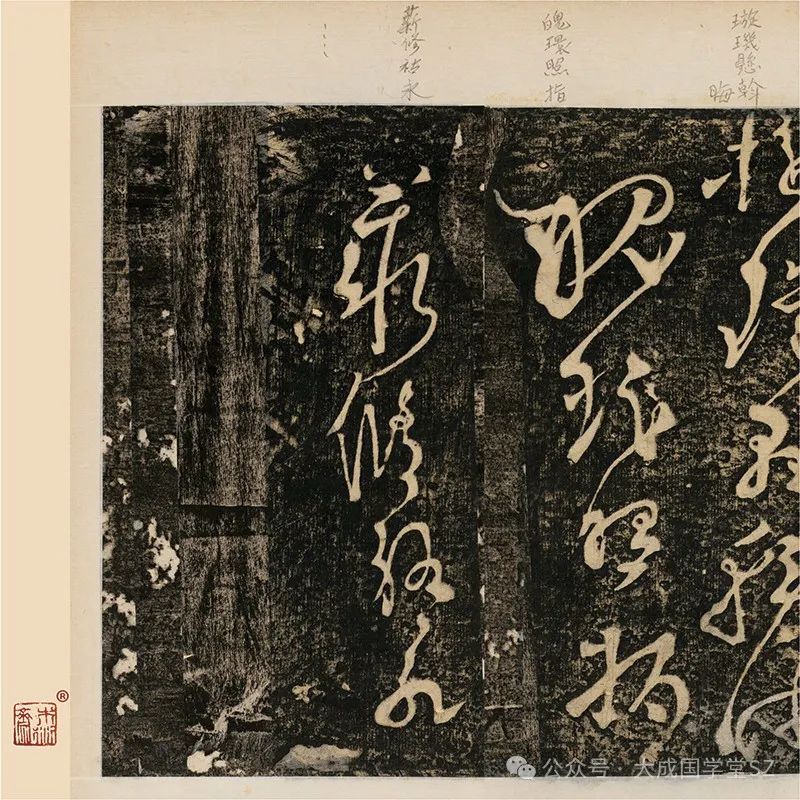 璇璣懸斡
晦
魄環照指
薪修祜永
璇璣懸斡晦
魄環照指
薪修祜永
®
公众号 · 大成国学堂SZ